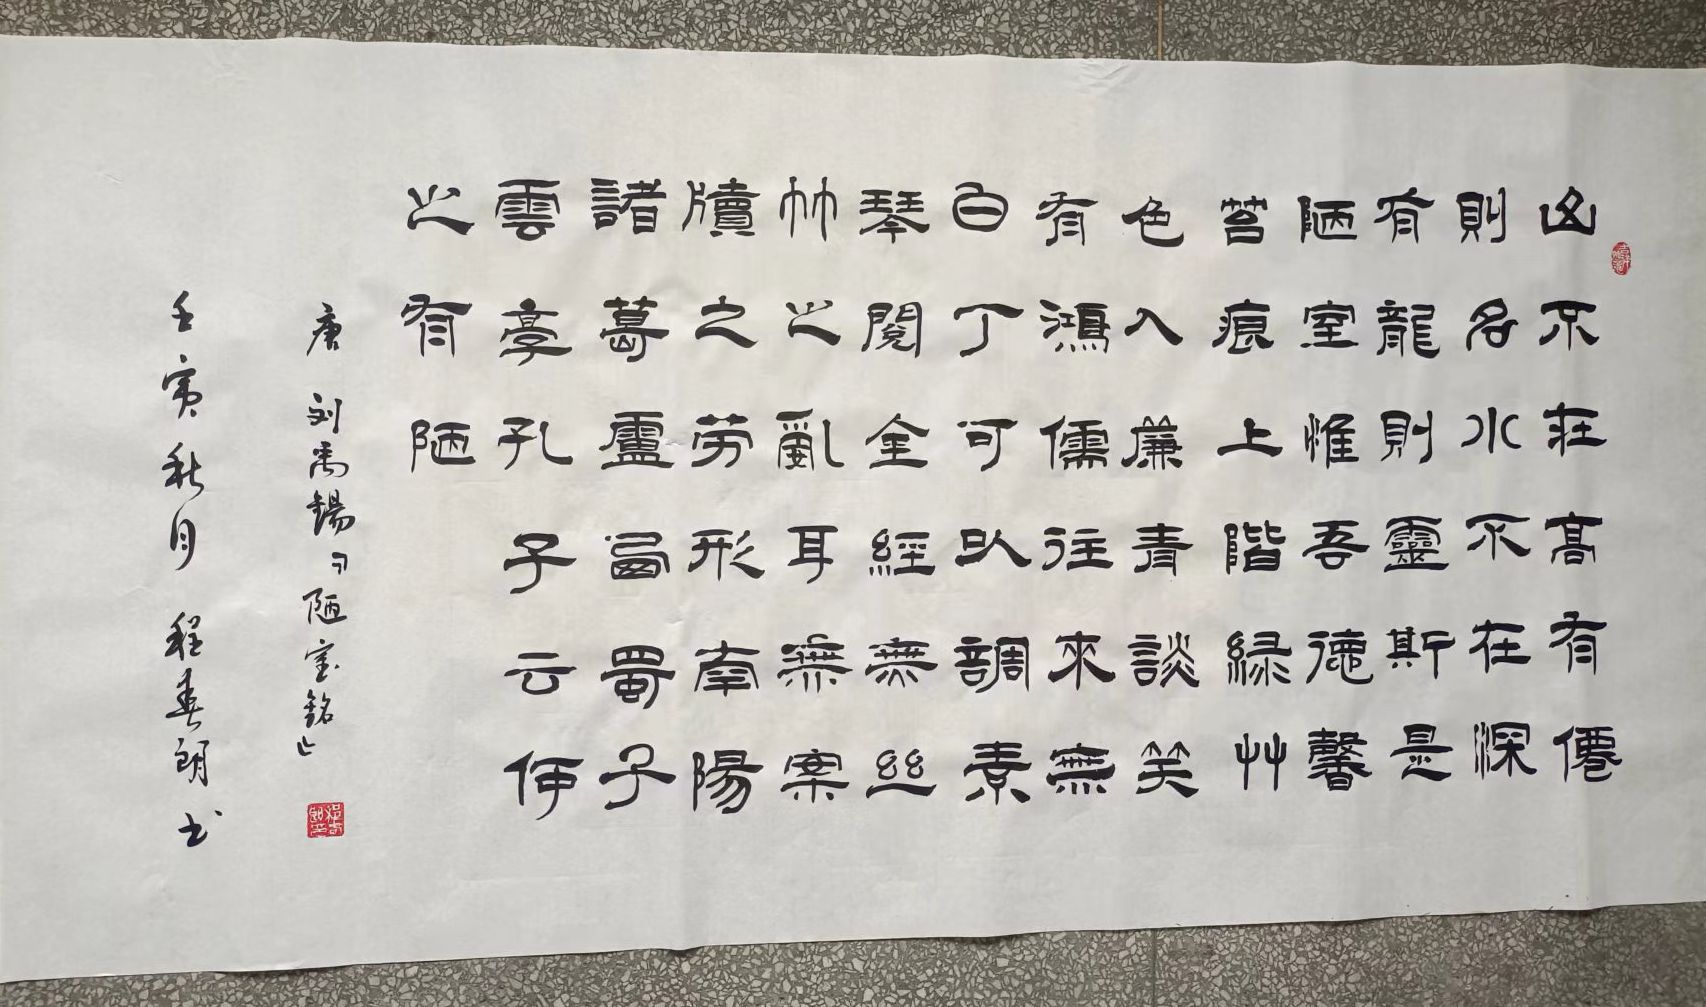 山不在高有僊
則名水不在深
有龍則靈斯是
陋室惟吾德馨
苔痕上階緑艸
色入廉青談笑
有鴻儒往來無
白丁可以調素
琴閲金經無丝
竹之亂耳無案
牘之劳形南陽
諸葛盧西蜀子
雲亭孔子云何
之有陋
唐 刘禹錫《陋室銘》
壬寅秋月 程春朗书